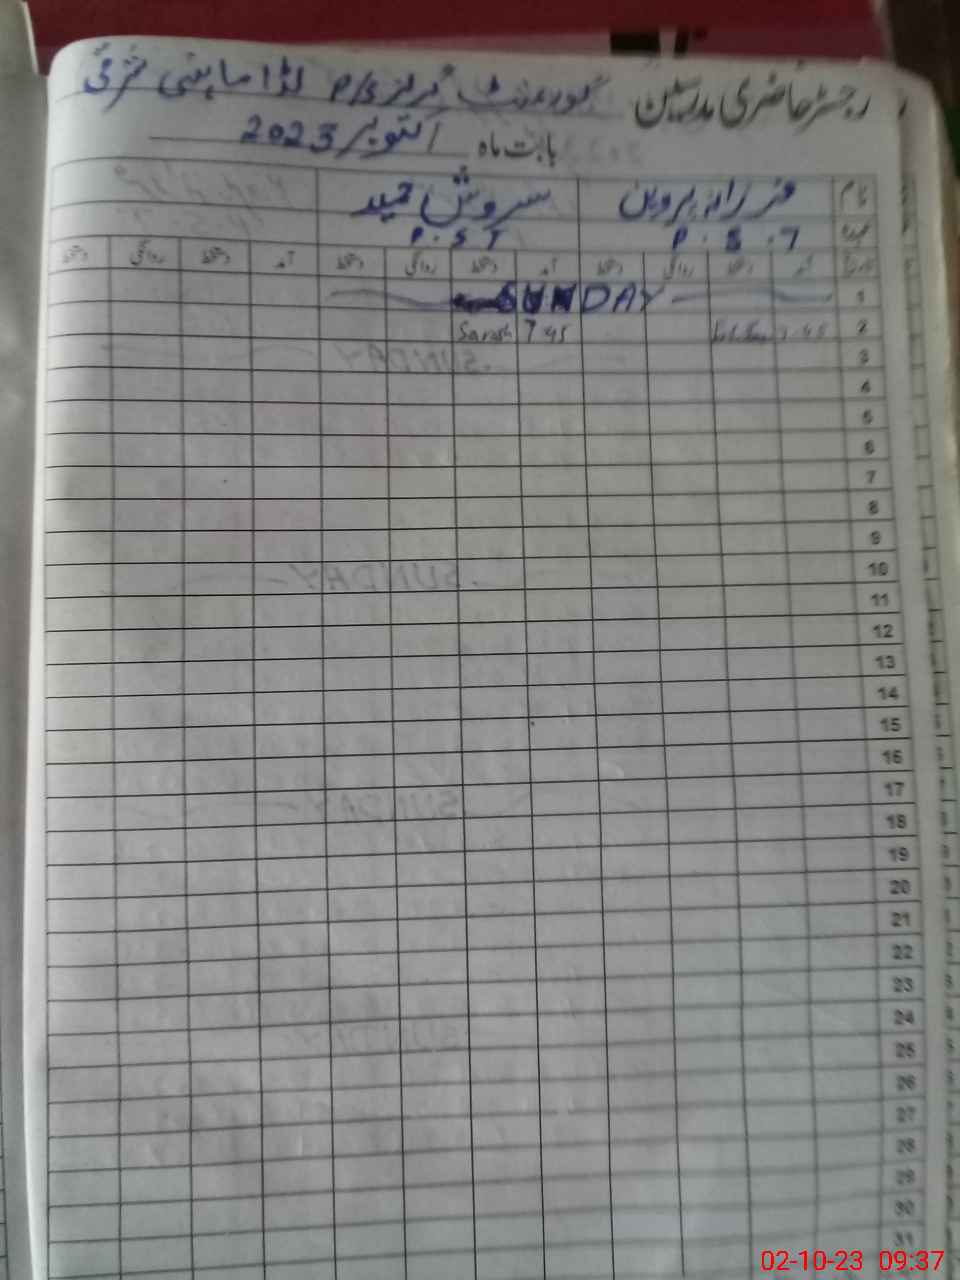 رجسٹر حاضری مدرسین گورنمنٹ گرلز P/S لڈا ماہنی شرقی
بابت ماہ اکتوبر 2023
نام فرزانہ پروین سروش حمید
عہدہ P.S.T P.S.T
تاریخ آمد دستخط روانگی دستخط آمد دستخط روانگی دستخط آمد دستخط روانگی دستخط
1 SUNDAY
2 7.45 7.45 Sarosh
3
4
5
6
7
8
9
10
11
12
13
14
15
16
17
18
19
20
21
22
23
24
25
26
27
28
29
30
31
02-10-23 09:37